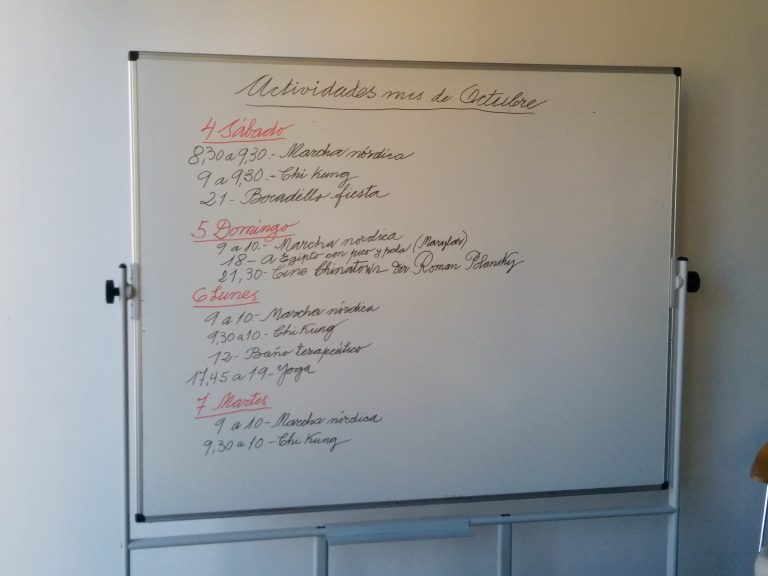 Actividades mes de Octubre
4 Sábado
8,30 a 9,30.- Marcha nórdica
9 a 9,30.- Chi Kung
21- Bocadillo fiesta
5 Domingo
9 a 10.- Marcha nórdica
18- A Egipto con pico y pala (Marylar)
21,30- Cine Chinatown Dir Roman Polansky
6 Lunes
9 a 10- Marcha nórdica
9,30 a 10- Chi Kung
12- Baño terapeútico
17,45 a 19- Yoga
7 Martes
9 a 10- Marcha nórdica
9,30 a 10- Chi Kung